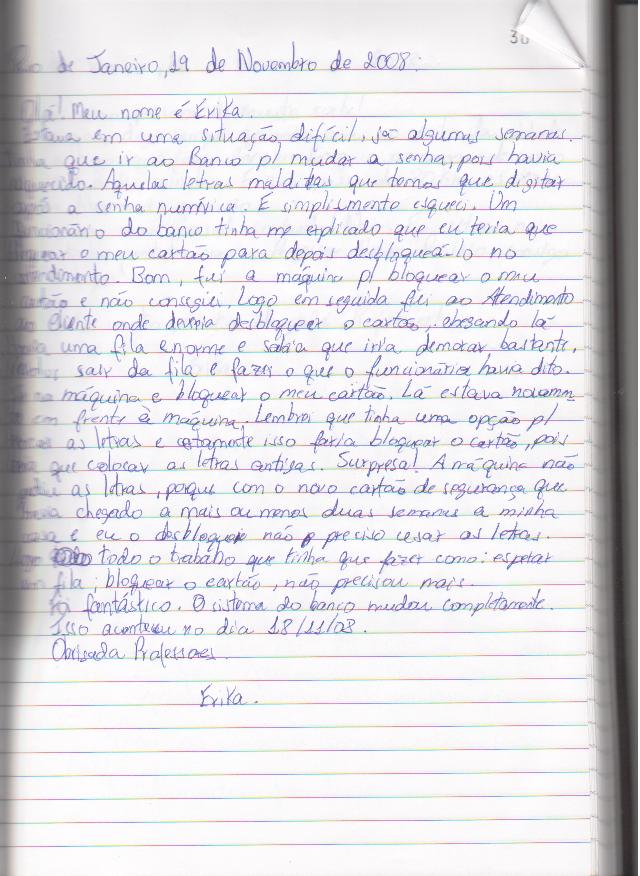 30
Rio de Janeiro, 19 de Novembro de 2008.
Olá! Meu nome é Erika.
Estava em uma situação difícil, já algumas semanas.
Tinha que ir ao Banco p/ mudar a senha, pois havia
esquecido. Aquelas letras malditas que temos que digitar
após a senha numérica. E simplismente esqueci. Um
funcionário do banco tinha me explicado que eu teria que
bloquear o meu cartão para depois desbloqueá-lo no
atendimento. Bom, fui a máquina p/ bloquear o meu
cartão e não consegui. Logo em seguida fui ao Atendimento
ao Cliente onde deveria desbloquear o cartão, chegando lá
havia uma fila enorme e sabia que iria demorar bastante,
sair da fila e fazer o que o funcionário havia dito.
Ir na máquina e bloquear o meu cartão. Lá estava novamen
te em frente à máquina. Lembrei que tinha uma opção p/
trocar as letras e certamente isso faria bloquear o cartão, pois
que colocar as letras antigas. Surpresa! A máquina não
pediu as letras, porque com o novo cartão de segurança que
havia chegado a mais ou menos duas semanas a minha
casa e eu o desbloqueie não preciso usar as letras.
todo o trabalho que tinha que fazer como: esperar
em fila, bloquear o cartão, não precisou mais.
Foi fantástico. O sistema do banco mudou completamente.
Isso aconteceu no dia 18/11/08.
Obrigada Professores.
Erika.